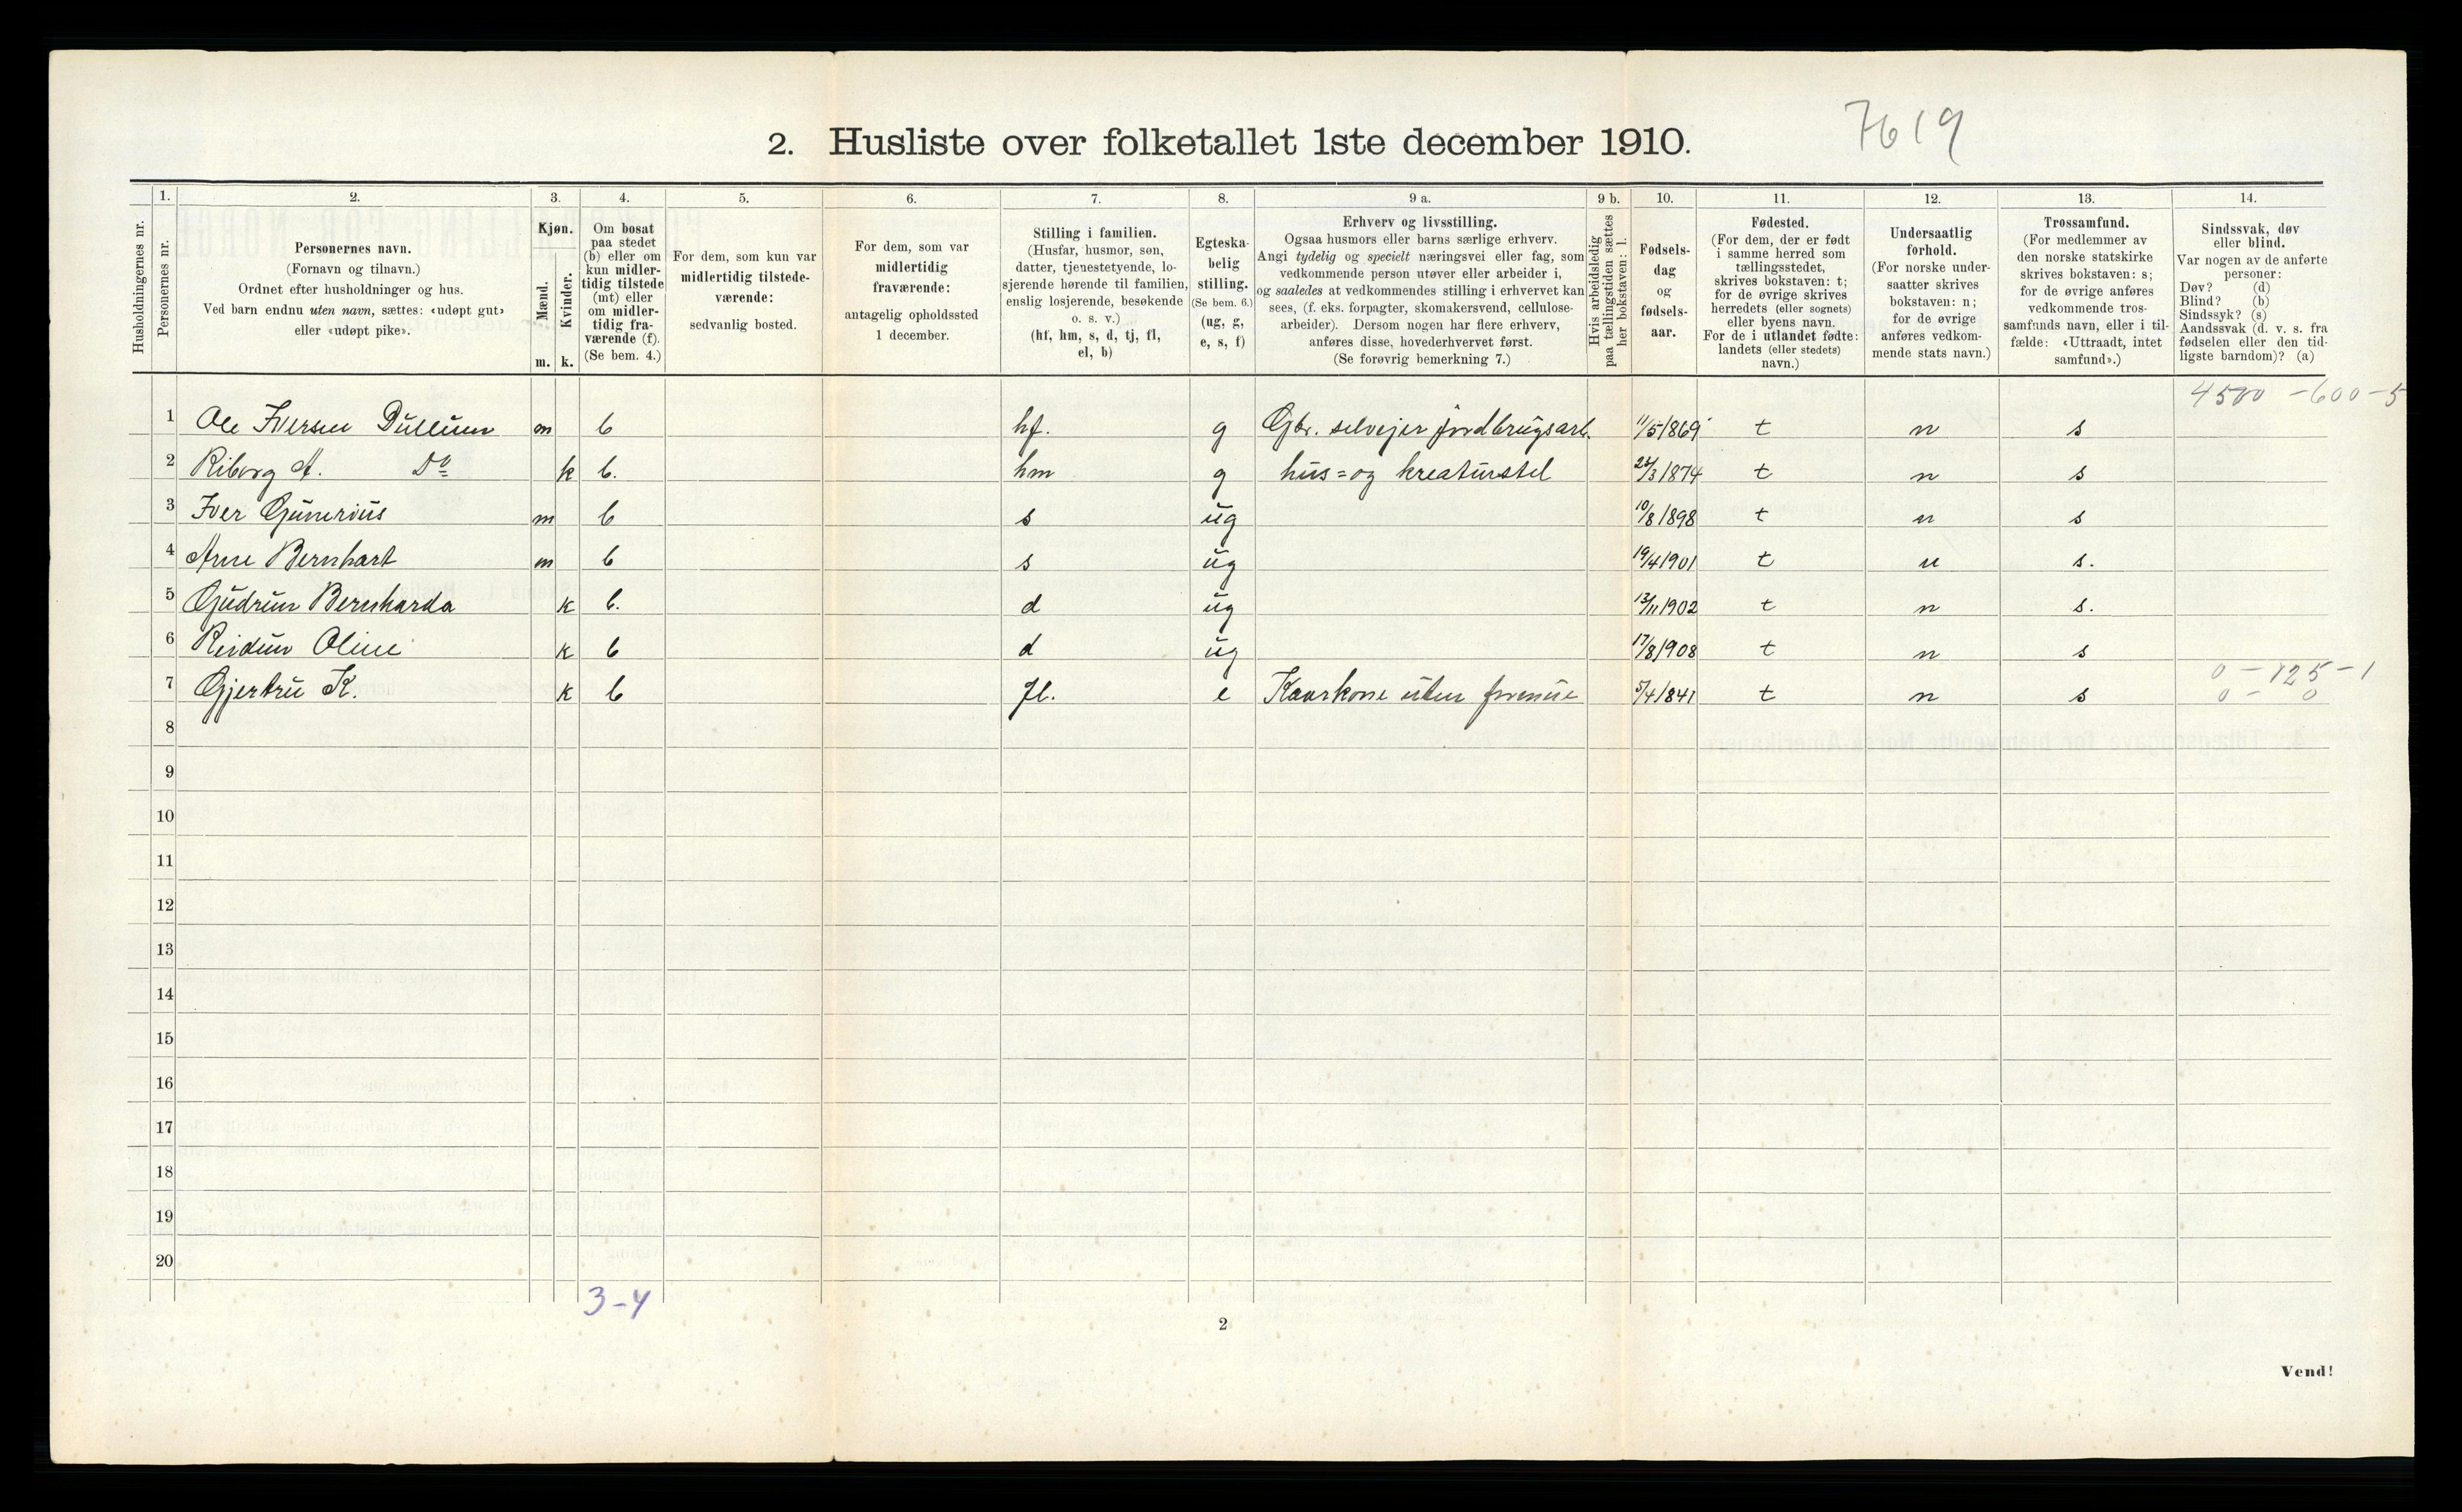 2. Husliste over folketallet 1ste december 1910.
7619
1. 2. 3. 4. 5. 6. 7. 8. 9 a. 9 b. 10. 11. 12. 13. 14.
Husholdningernes nr.
Personernes nr.
Personernes navn.
(Fornavn og tilnavn.)
Ordnet efter husholdninger og hus.
Ved barn endnu uten navn, sættes: «udøpt gut»
eller «udøpt pike».
Kjøn.
Mænd.
Kvinder.
m. k.
Om bosat
paa stedet
(b) eller om
kun midler-
tidig tilstede
(mt) eller
om midler-
tidig fra-
værende (f).
(Se bem. 4.)
For dem, som kun var
midlertidig tilstede-
værende:
sedvanlig bosted.
For dem, som var
midlertidig
fraværende:
antagelig opholdssted
1 december.
Stilling i familien.
(Husfar, husmor, søn,
datter, tjenestetyende, lo-
sjerende hørende til familien,
enslig losjerende, besøkende
o. s. v.)
(hf, hm, s, d, tj, fl,
el, b)
Egteska-
belig
stilling.
(Se bem. 6.)
(ug, g,
e, s, f)
Erhverv og livsstilling.
Ogsaa husmors eller barns særlige erhverv.
Angi tydelig og specielt næringsvei eller fag, som
vedkommende person utøver eller arbeider i,
og saaledes at vedkommendes stilling i erhvervet kan
sees, (f. eks. forpagter, skomakersvend, cellulose-
arbeider). Dersom nogen har flere erhverv,
anføres disse, hovederhvervet først.
(Se forøvrig bemerkning 7.)
Hvis arbeidsledig
paa tællingstiden sættes
her bokstaven: l.
Fødsels-
dag
og
fødsels-
aar.
Fødested.
(For dem, der er født
i samme herred som
tællingsstedet,
skrives bokstaven: t;
for de øvrige skrives
herredets (eller sognets)
eller byens navn.
For de i utlandet fødte:
landets (eller stedets)
navn.)
Undersaatlig
forhold.
(For norske under-
saatter skrives
bokstaven: n;
for de øvrige
anføres vedkom-
mende stats navn.)
Trossamfund.
(For medlemmer av
den norske statskirke
skrives bokstaven: s;
for de øvrige anføres
vedkommende tros-
samfunds navn, eller i til-
fælde: «Uttraadt, intet
samfund».)
Sindssvak, døv
eller blind.
Var nogen av de anførte
personer:
Døv? (d)
Blind? (b)
Sindssyk? (s)
Aandssvak (d. v. s. fra
fødselen eller den tid-
ligste barndom)? (a)
4500 - 600 - 5
1 Ole Iversen Dullum m b hf. g Gbr. selvejer jordbrugsarb. 11/5 1869 t n s
2 Riborg A. Do k b. hm g hus= og kreaturstel 26/3 1874 t n s
3 Iver Gunerius m b s ug 10/8 1898 t n s
4 Arne Bernhart m b s ug 19/4 1901 t n s.
5 Gudrun Bernharda k b. d ug 13/11 1902 t n s.
6 Reidun Oline k b d ug 17/8 1908 t n s
0 - 125 - 1
7 Gjertru K. k b fl. e Kaarkone uten formue 5/4 1841 t n s 0 - 0
8
9
10
11
12
13
14
15
16
17
18
19
20
3-4
2
Vend!